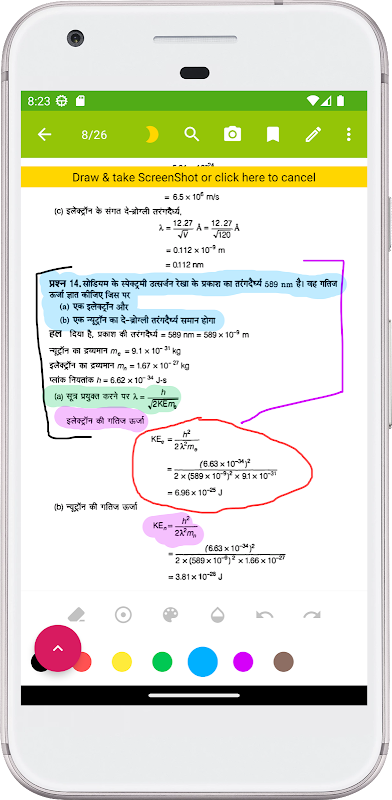 8:23
8/26
Draw & take ScreenShot or click here to cancel
= 6.5 × 10⁶ m/s
(c) इलेक्ट्रॉन के संगत दे-ब्रोग्ली तरंगदैर्ध्य,
λ = 12.27/√V Å = 12.27/√120 Å
= 0.112 × 10⁻⁹ m
= 0.112 nm
प्रश्न 14. सोडियम के स्पेक्ट्रमी उत्सर्जन रेखा के प्रकाश का तरंगदैर्ध्य 589 nm है। वह गतिज
ऊर्जा ज्ञात कीजिए जिस पर
(a) एक इलेक्ट्रॉन और
(b) एक न्यूट्रॉन का दे-ब्रोग्ली तरंगदैर्ध्य समान होगा
हल दिया है, प्रकाश की तरंगदैर्ध्य = 589 nm = 589 × 10⁻⁹ m
न्यूट्रॉन का द्रव्यमान mₑ = 9.1 × 10⁻³¹ kg
इलेक्ट्रॉन का द्रव्यमान mₙ = 1.67 × 10⁻²⁷ kg
प्लांक नियतांक h = 6.62 × 10⁻³⁴ J-s
(a) सूत्र प्रयुक्त करने पर λ = h/√2KEmₑ
इलेक्ट्रॉन की गतिज ऊर्जा
KEₑ = h²/2λ²mₑ
= (6.63 × 10⁻³⁴)²/2 × (589 × 10⁻⁹)² × 9.1 × 10⁻³¹
= 6.96 × 10⁻²⁵ J
(b) न्यूट्रॉन की गतिज ऊर्जा
KEₙ = h²/2λ²mₙ
= (6.63 × 10⁻³⁴)²/2 × (589 × 10⁻⁹)² × 1.66 × 10⁻²⁷
= 3.81 × 10⁻²⁸ J